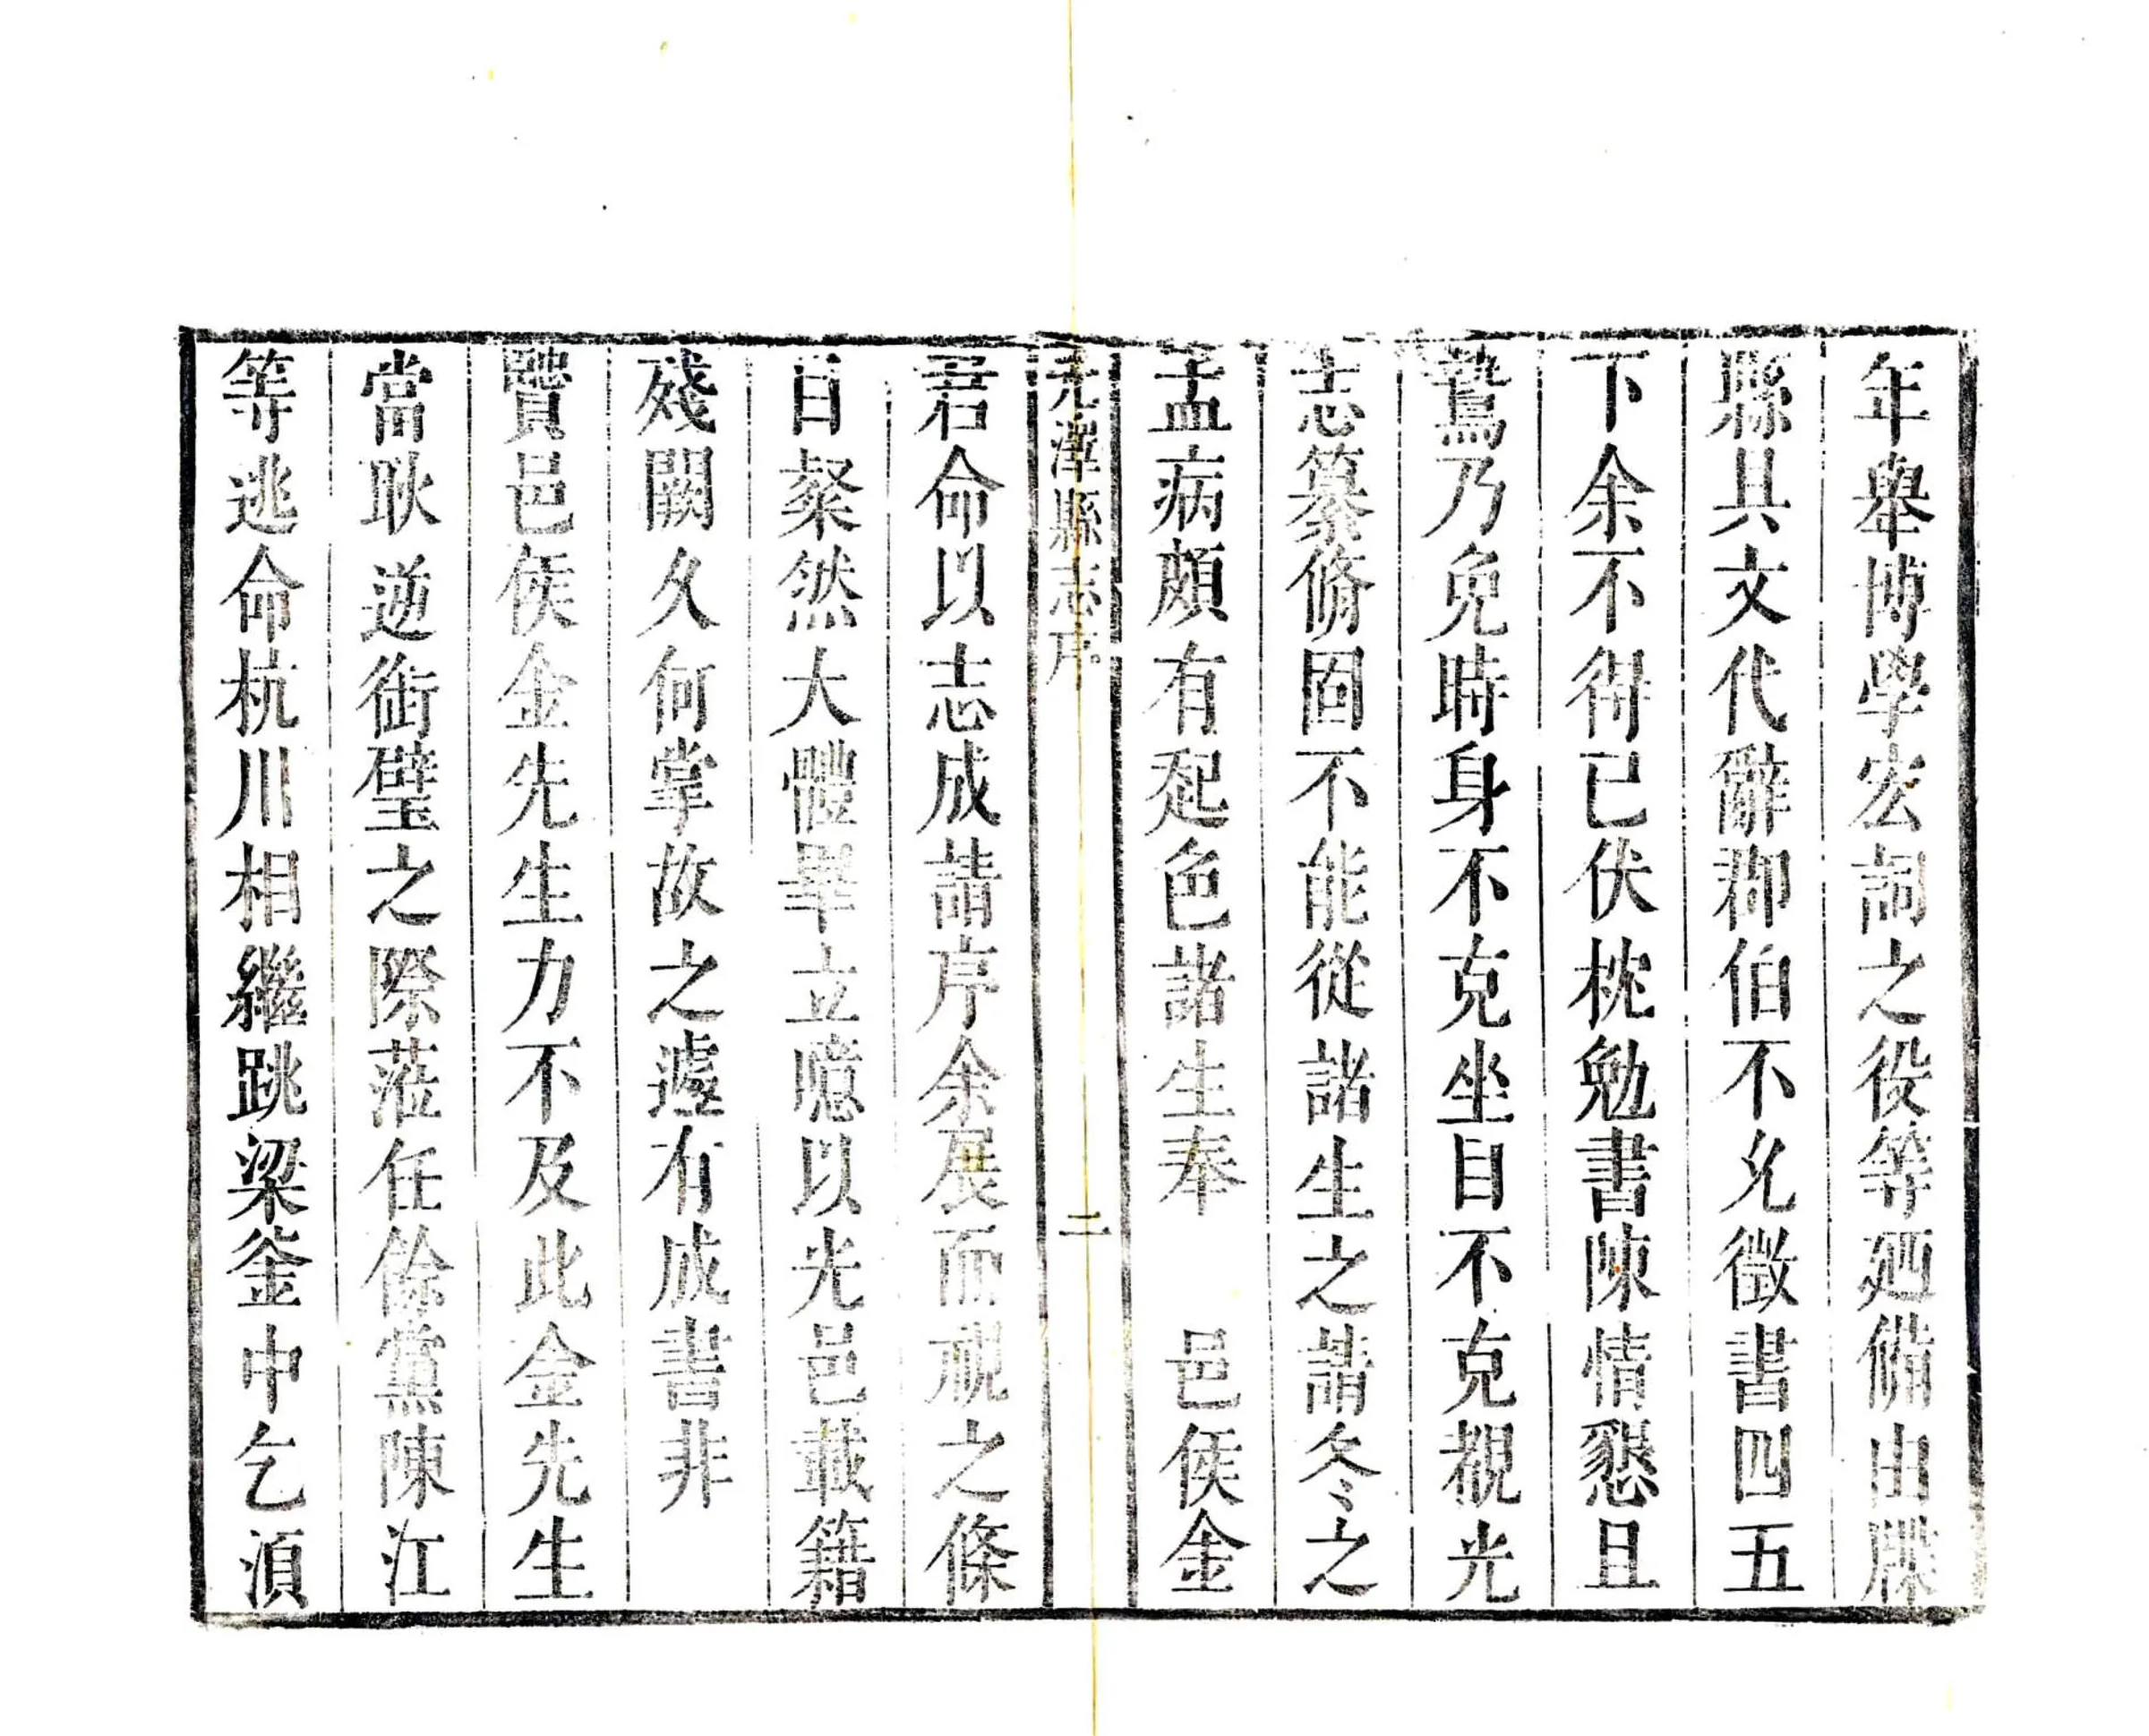 年舉博學宏詞之役等廼備由牒
縣具文代辭郡伯不允徵書四五
下余不得已伏枕勉書陳情懇且
鷙乃免時身不克坐目不克覩光
志纂脩固不能從諸生之請冬之
孟病頗有起色諸生奉　邑侯金
光澤縣志序
二
君命以志成請序余展而視之條
目粲然大體畢立噫以光邑載籍
殘闕久何掌故之遽有成書非
賢邑侯金先生力不及此金先生
當耿逆銜璧之際蒞任餘黨陳江
等逃命杭川相繼跳梁釜中乞湏